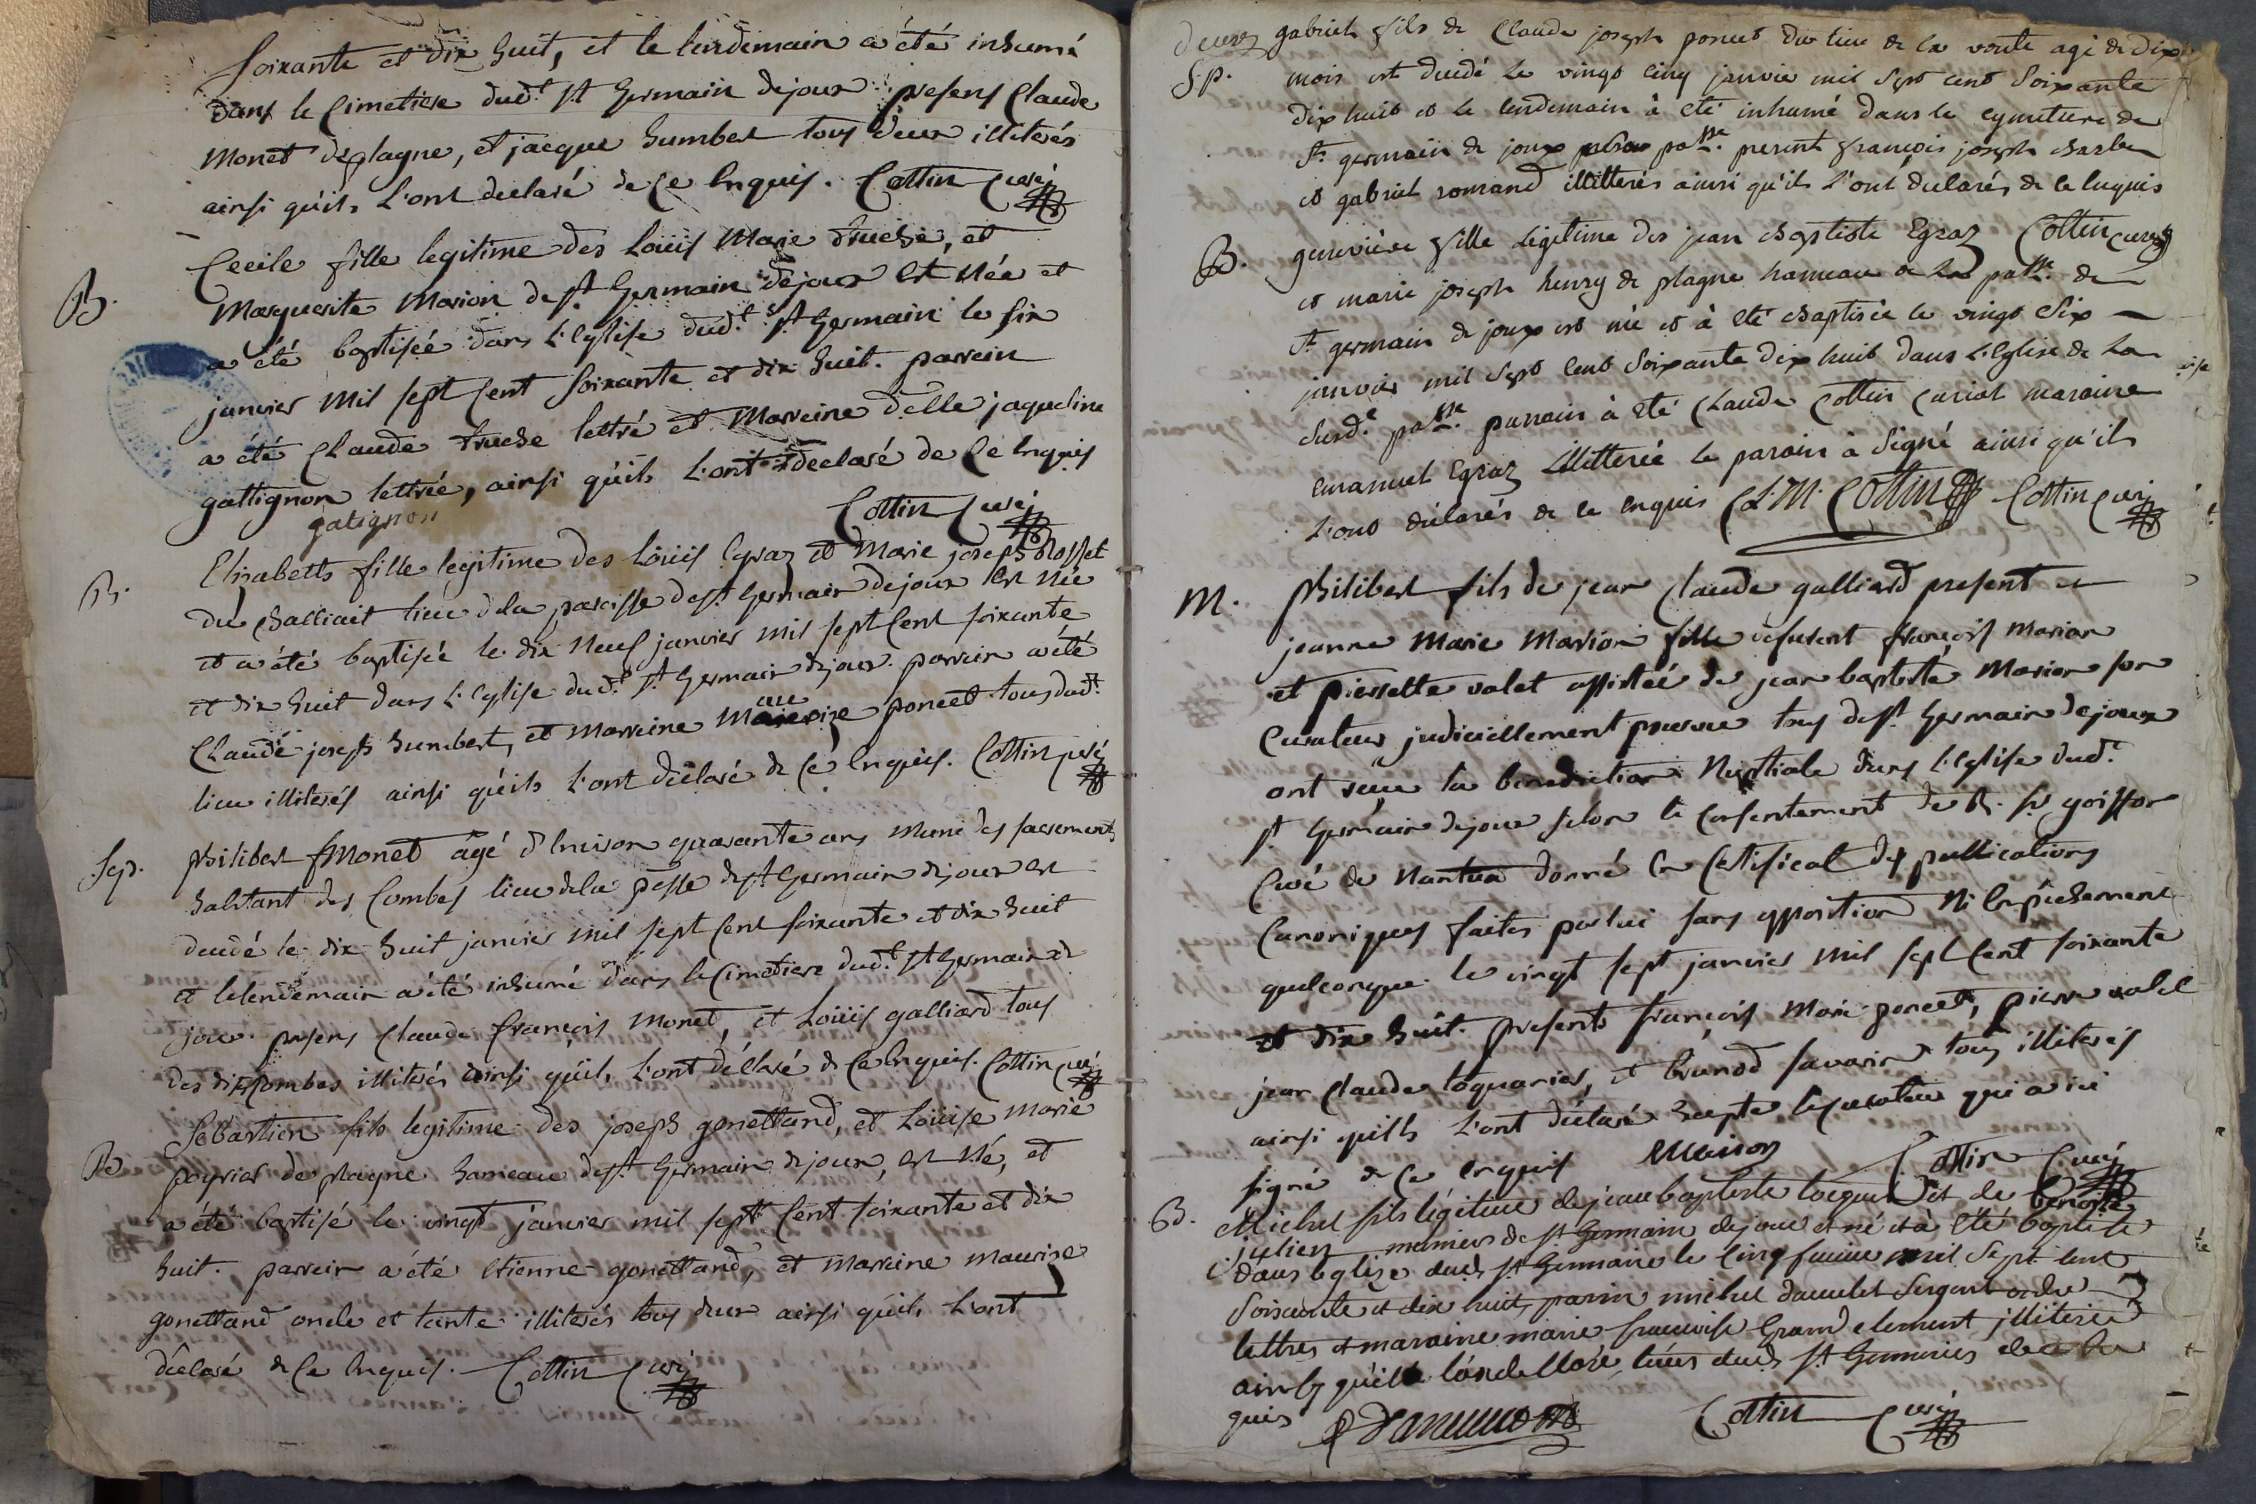 Soixante et dix huit, et le lendemain a été inhumé
dans le Cimetiere dud.t St Germain dejoux presens Claude
Monet déplagne, et jacque humbert tous deux illiterés
ainsi qu'ils L'ont declaré de Ce Enquis. Cottin Curé
B.
Cecile fille legitime des Loüis Marie truche, et
Marguerite Marion de St Germain dejoux Est Née et
a été baptisée dans L'Eglise dud.t St Germain le six
janvier Mil sept Cent soixante et dix huit. parrein
a été Claude truche lettré et Marreine d'elle jaqueline
gattignon lettrée, ainsi qu'ils L'ont declaré de Ce Enquis
gatignon
Cottin Curé
B.
Elisabeth fille legitime des Loüis Egraz et Marie joseph Rosset
du Challiait lieu dela paroisse de St Germain dejoux Est Née
et a été baptisée le dix Neuf janvier Mil sept Cent soixante
et dix huit dans L'Eglise dud.t St Germain dejoux. parrein a été
Claude joseph humbert, et Marreine Maurize poncet tous dud.t
lieu illiterés ainsi qu'ils L'ont declaré de Ce Enquis. Cottin Curé
Sep.
philibert Monet âgé d'Environ quarante ans Muni des sacrements
habitant des Combes lieu dela pésse de St Germain dejoux est
decedé le dix huit janvier Mil sept Cent soixante et dix huit
et lelendemain a été inhumé dans le Cimetiere dud.t St Germain de
joux. presens Claude François Monet, et Loüis galliard tous
des dix Combes illiterés ainsi qu'ils L'ont déclaré de Ce Enquis. Cottin Curé
B
Sebastien fils legitime des joseph gonettand, et Loüise Marie
poyriat de plagne hameau de St Germain dejoux, est Né, et
a été baptisé le vingt janvier mil sept Cent soixante et dix
huit. parrein a été Etienne gonettand, et Marreine maurise
gonettand oncle et tante illiterés tous deux ainsi qu'ils L'ont
déclaré de Ce Enquis. Cottin Curé
S.p.
gabriel fils de Claude joseph poncet du lieu de la voute agé de dix
mois est decedé le vingt cinq janvier mil sept cent soixante
dix huit et le lendemain à eté inhumé dans le cymetiere de
St germain de joux pa.sse present françois joseph
et gabriel romand illitterés ainsi qu'ils l'ont declarés de ce enquis
Cottin curé
B.
genevieve fille légitime des jean baptiste Egraz
et marie joseph henry de plagne hameau de la pa.sse de
St germain de joux est née et à eté baptisée le vingt six
janvier mil sept cent soixante dix huit dans L'Eglise de La
susd.e pa.sse parrain à eté Claude Cottin curial maraine
emanuel Egraz illitterée le parain à signé ainsi qu'ils
l'ont declarés de ce enquis C.L.M. Cottin Cottin Curé
M.
philibert fils de jean Claude galliard present et
jeanne Marie Marion fille defunct François Marion
et pierrette valet assistée de jean baptiste Marion son
Curateur judiciellement pourvu tous de St Germain dejoux
ont reçu la benediction Nuptiale dans L'Eglise dud.t
St Germain dejoux selon le Consentement de R. Sr goiffon
Curé de Nantua donné En Certificat des publications
Canoniques faites par lui sans opposition Ni Empêchement
quelconque le vingt sept janvier Mil sept Cent soixante
et dix huit. presents François Marie poncet, pierre valet
jean Claude toquanier, et bunod savarin tous illiterés
ainsi qu'ils L'ont déclaré Excepté le Curateur qui a ici
signé de Ce Enquis Marion Cottin Curé
B.
Michel fils légitime de jean baptiste et de benoite
julien meunier de St Germain dejoux et né et à eté baptisé
dans Eglise dud.t St Germain le cinq fevrier mil sept cent
soixante et dix huit, parin michel sergent ordre
lettres et maraine marie francoise Grand clement jlliterée
ainsy qu'ils lon dellaré dud.t St Germain de ce En
quis Cottin Curé